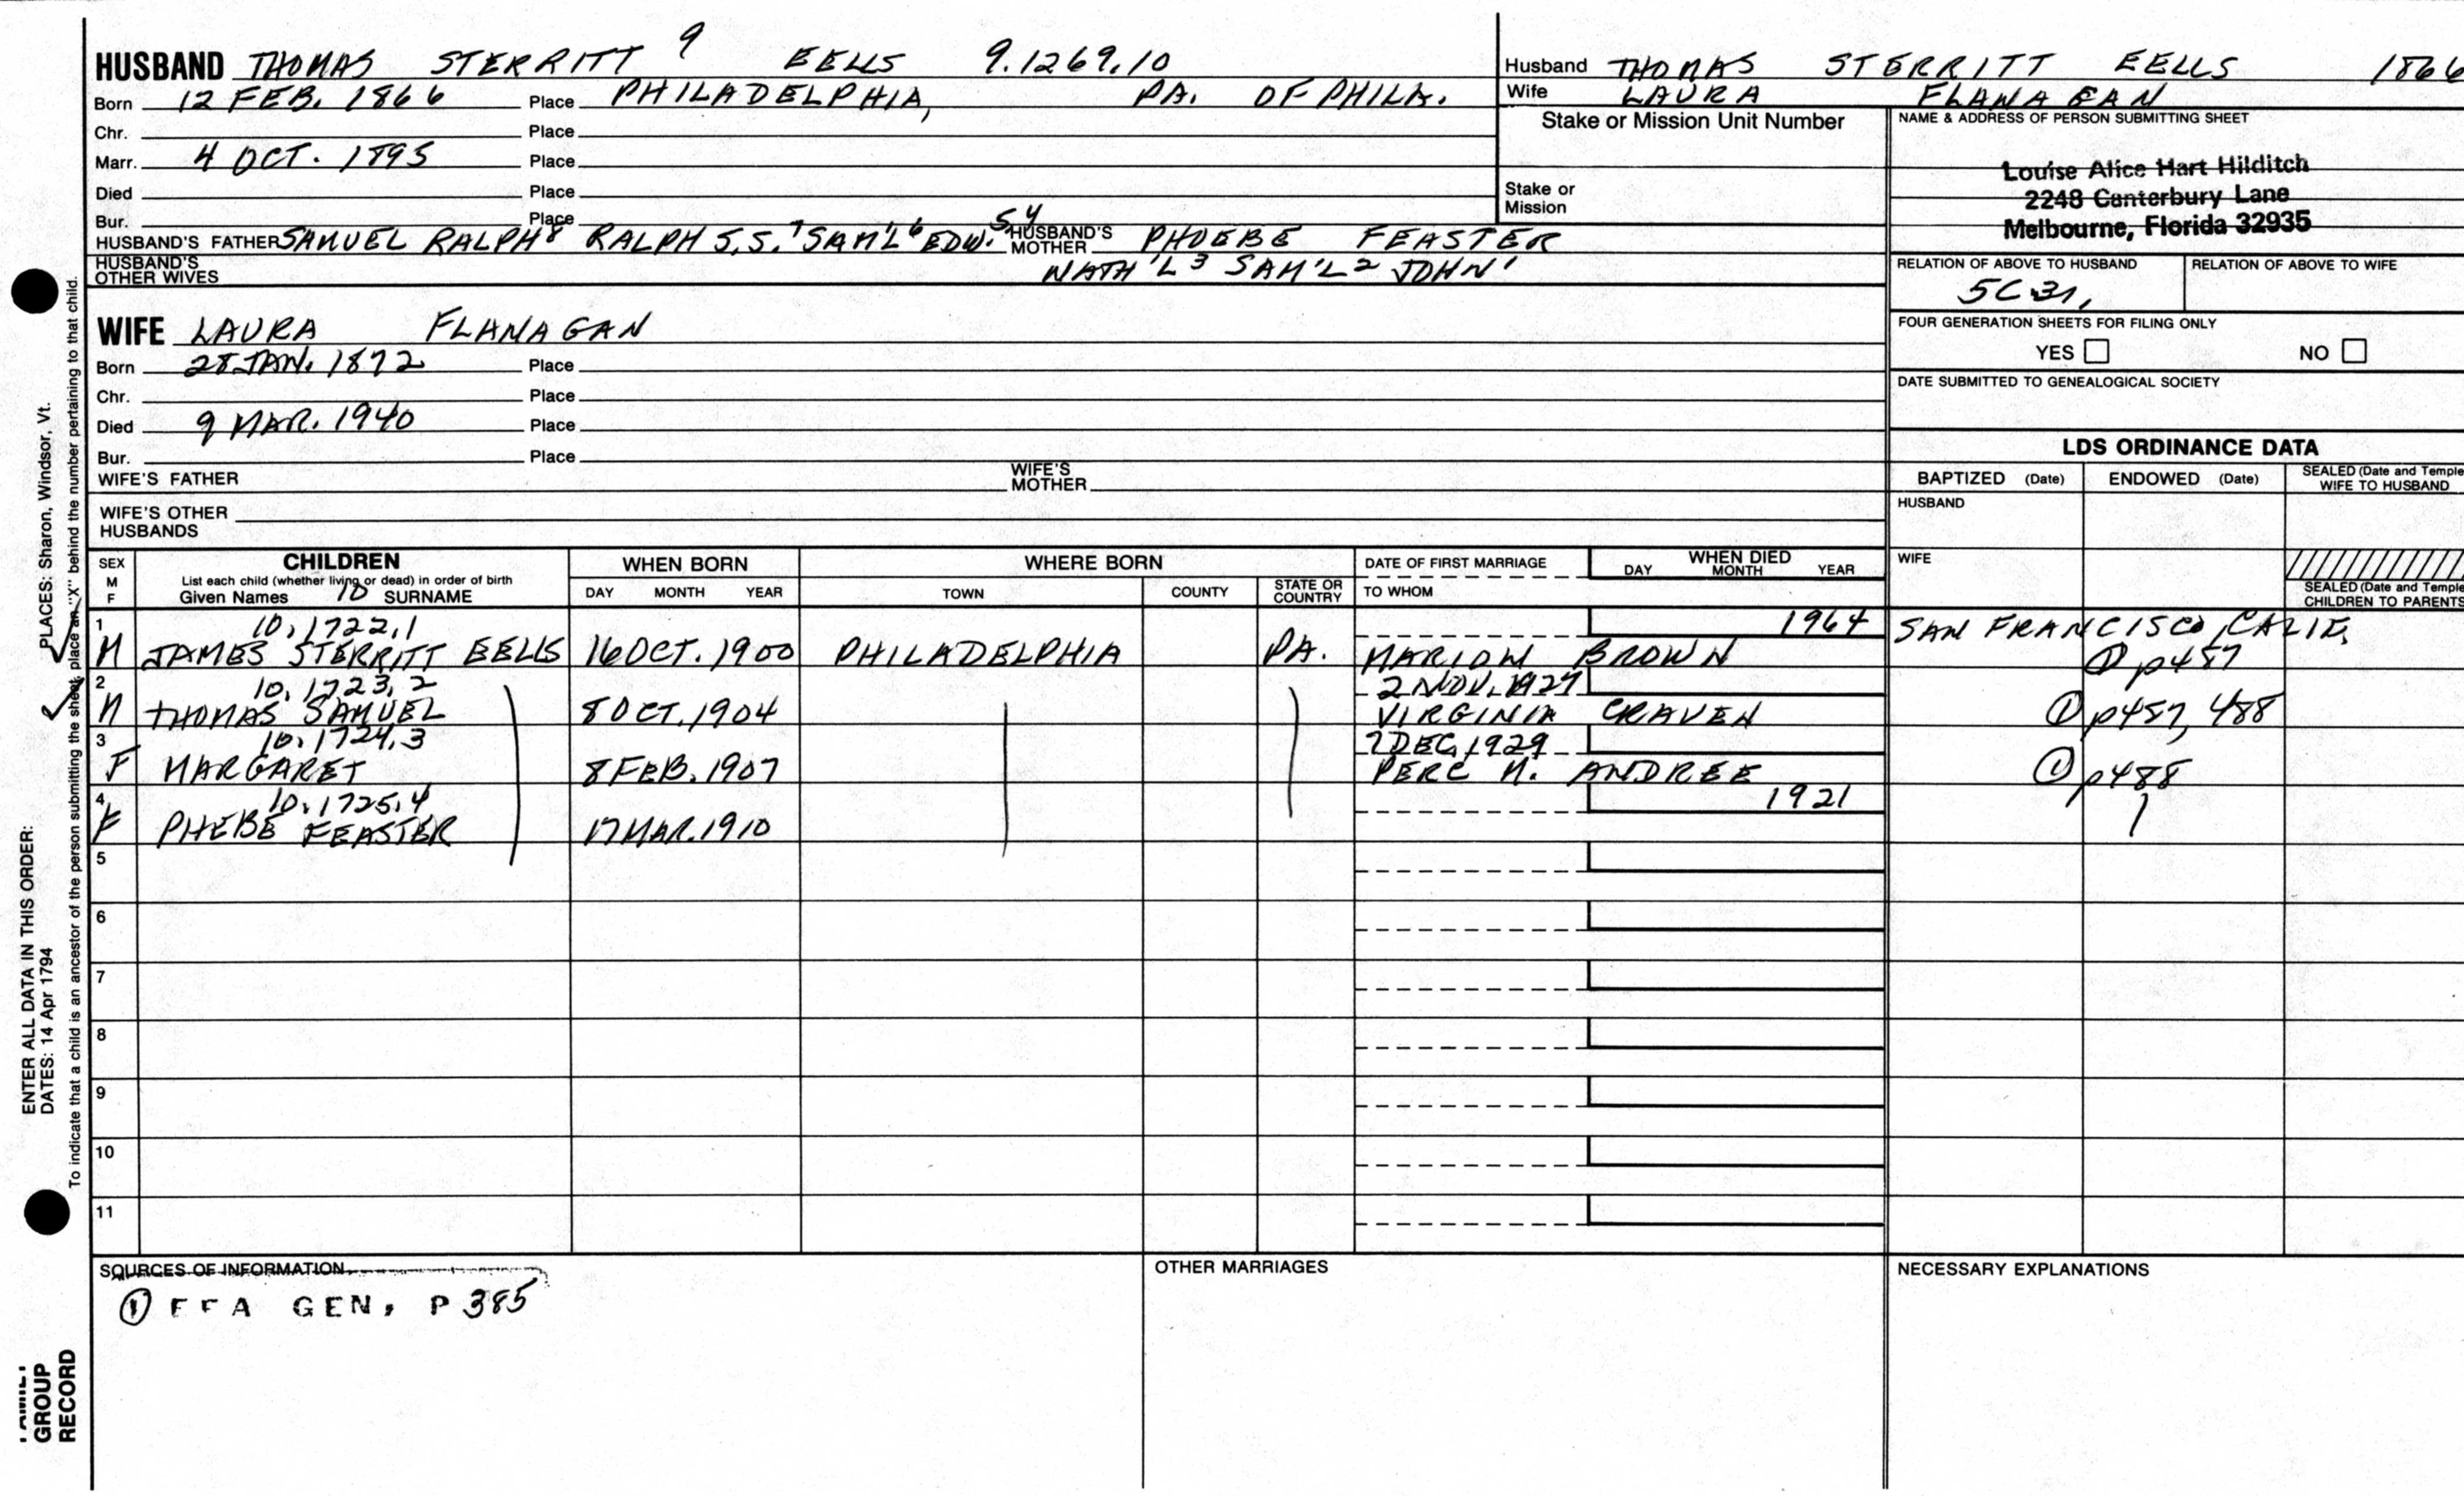 HUSBAND THOMAS STERRITT 9 EELLS 9.1269.10
Born 12 FEB. 1866 Place PHILADELPHIA, PA. OF PHILA.
Chr. Place
Marr. 4 OCT. 1895 Place
Died Place
Bur. Place
HUSBAND'S FATHER SAMUEL RALPH 8 RALPH S.S. 7 SAM'L 6 EDW. 5 4 HUSBAND'S MOTHER PHOEBE FEASTER
HUSBAND'S OTHER WIVES NATH'L 3 SAM'L 2 JOHN 1
Husband THOMAS STERRITT EELLS 1866
Wife LAURA FLANAGAN
Stake or Mission Unit Number
Stake or Mission
NAME & ADDRESS OF PERSON SUBMITTING SHEET
Louise Alice Hart Hilditch
2248 Canterbury Lane
Melbourne, Florida 32935
RELATION OF ABOVE TO HUSBAND RELATION OF ABOVE TO WIFE
FOUR GENERATION SHEETS FOR FILING ONLY
YES NO
DATE SUBMITTED TO GENEALOGICAL SOCIETY
WIFE LAURA FLANAGAN
Born 28 JAN. 1872 Place
Chr. Place
Died 9 MAR. 1940 Place
Bur. Place
WIFE'S FATHER WIFE'S MOTHER
WIFE'S OTHER HUSBANDS
LDS ORDINANCE DATA
BAPTIZED (Date) ENDOWED (Date) SEALED (Date and Temple) WIFE TO HUSBAND
HUSBAND
WIFE
SEALED (Date and Temple) CHILDREN TO PARENTS
SEX M F CHILDREN WHEN BORN WHERE BORN DATE OF FIRST MARRIAGE WHEN DIED
List each child (whether living or dead) in order of birth
Given Names 10 SURNAME DAY MONTH YEAR TOWN COUNTY STATE OR COUNTRY TO WHOM DAY MONTH YEAR
1 10,1722,1 1964 SAN FRANCISCO, CALIF.
M JAMES STERRITT EELLS 16 OCT. 1900 PHILADELPHIA PA. MARION BROWN ① p457
2 10,1723,2 2 NOV. 1927
M THOMAS SAMUEL 8 OCT. 1904 VIRGINIA CRAVEN ① p457, 488
3 10,1724,3 7 DEC, 1929
F MARGARET 8 FEB. 1907 PERC M. ANDREE ① p488
4 10,1725,4 1921
F PHEBE FEASTER 17 MAR. 1910
5
6
7
8
9
10
11
SOURCES OF INFORMATION
① FFA GEN, P 385
OTHER MARRIAGES
NECESSARY EXPLANATIONS
ENTER ALL DATA IN THIS ORDER:
DATES: 14 Apr 1794 PLACES: Sharon, Windsor, Vt.
To indicate that a child is an ancestor of the person submitting the sheet, place an "X" behind the number pertaining to that child.
GROUP
RECORD